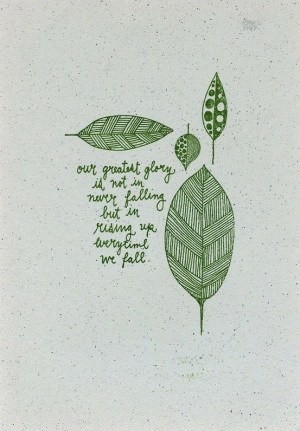 our greatest glory
is not in
never falling
but in
rising up
everytime
we fall.